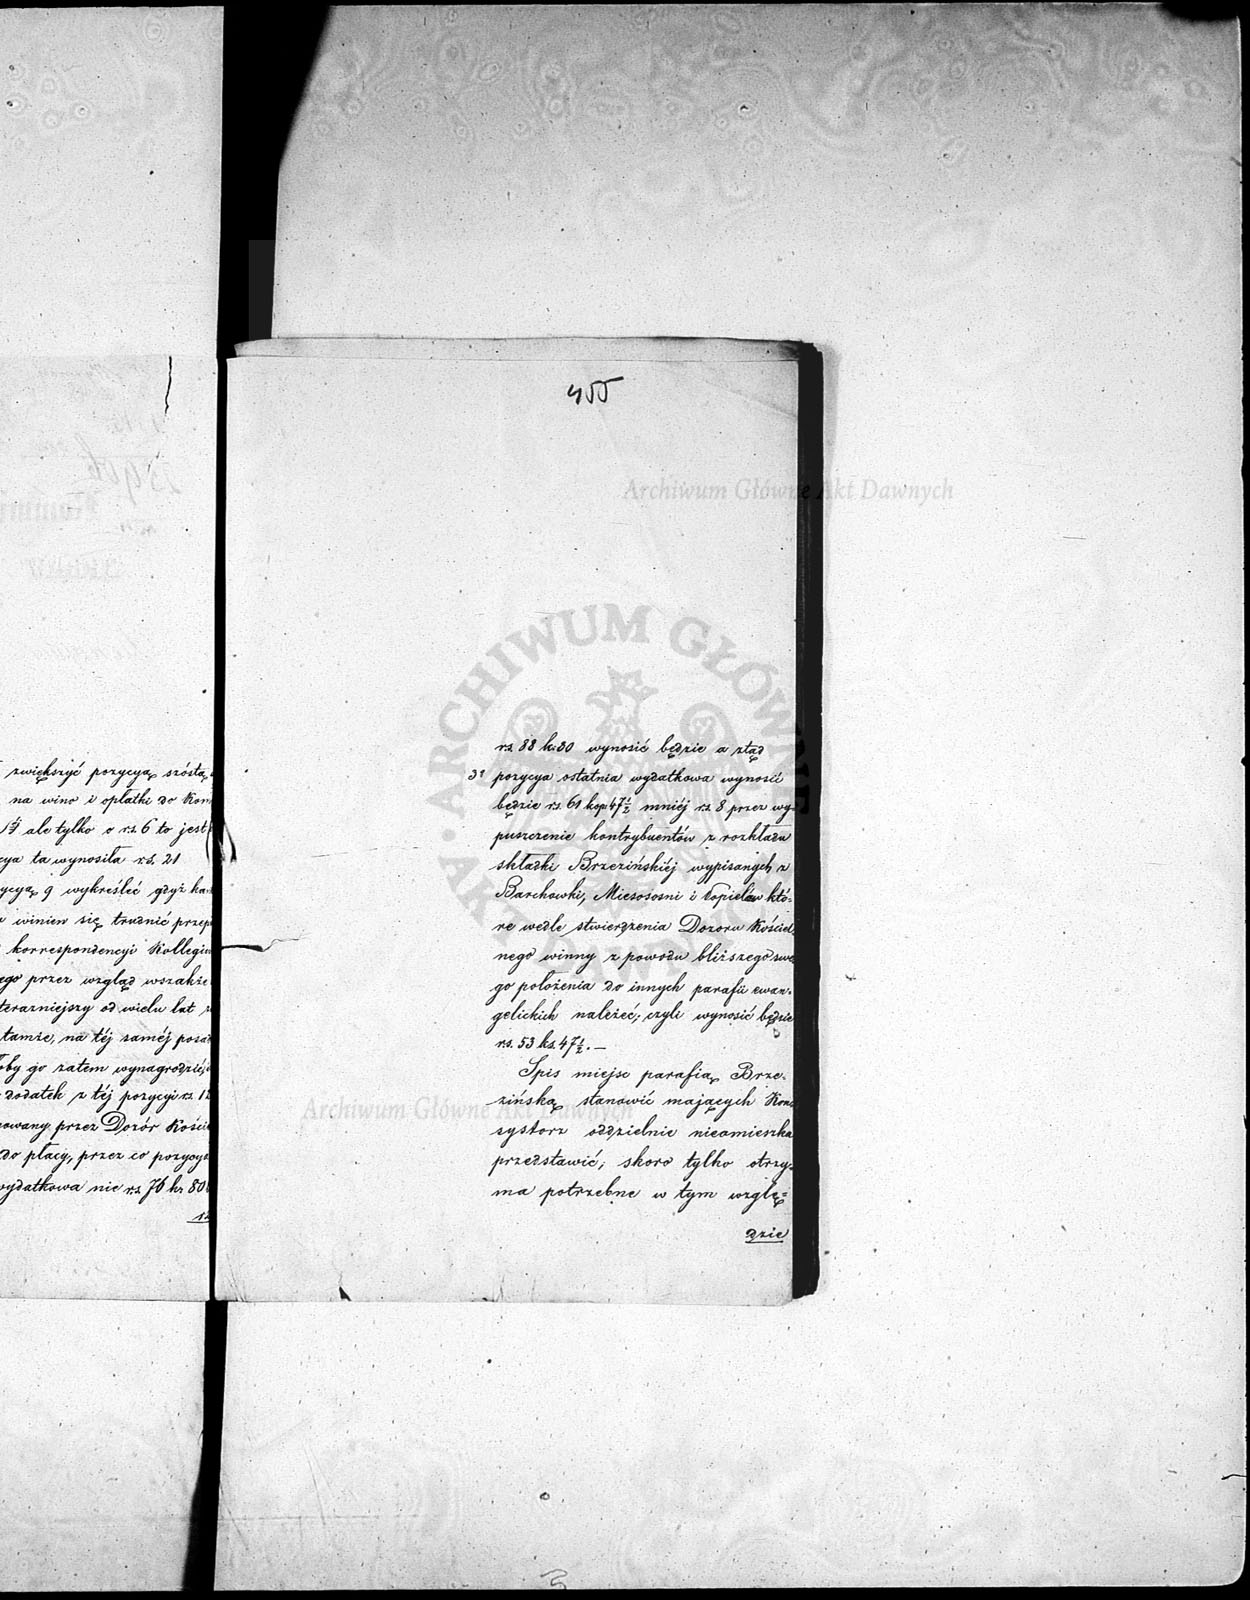 zwiększyć pozycyą szóstą
na wino i opłatki do Kom
ale tylko o rs. 6 to jest
cya ta wynosiła rs. 21
ycyą 9 wykreślić gdyż
winien się trudnić przep
korrespondencyi Kollegiu
ego przez wzgląd wszakże
teraźniejszy od wielu lat
tamże, na téj saméj posa
oby go zatem wynagrodzić,
dodatek z téj pozycyi rs. 12
owany przez Dozór Kości
do płacy, przez co pozycya
wydatkowa nie rs. 76 k. 80
455
rs. 88 k. 80 wynosić będzie a ztąd
3° pozycya ostatnia wydatkowa wynosić
będzie rs. 61 kop 47½ mniéj rs. 8 przez wy-
puszczenie kontrybuentów z rozkładu
składki Brzezińskiéj wypisanych z
Barchowki, Miesosośni i Topielów któ-
re wedle stwierdzenia Dozoru Kościel
nego winny z powodu bliższego swe
go położenia do innych parafii ewan-
gelickich należeć; czyli wynosić będzie
rs. 53 ks. 47½. —
Spis miejsc parafią Brze-
zińską stanowić mających Kon
systorz oddzielnie nieomieszka
przedstawić, skoro tylko otrzy-
ma potrzebne w tym wzglę=
dzie
Archiwum Główne Akt Dawnych
ARCHIWUM GŁÓWNE AKT DAWNYCH
Archiwum Główne Akt Dawnych